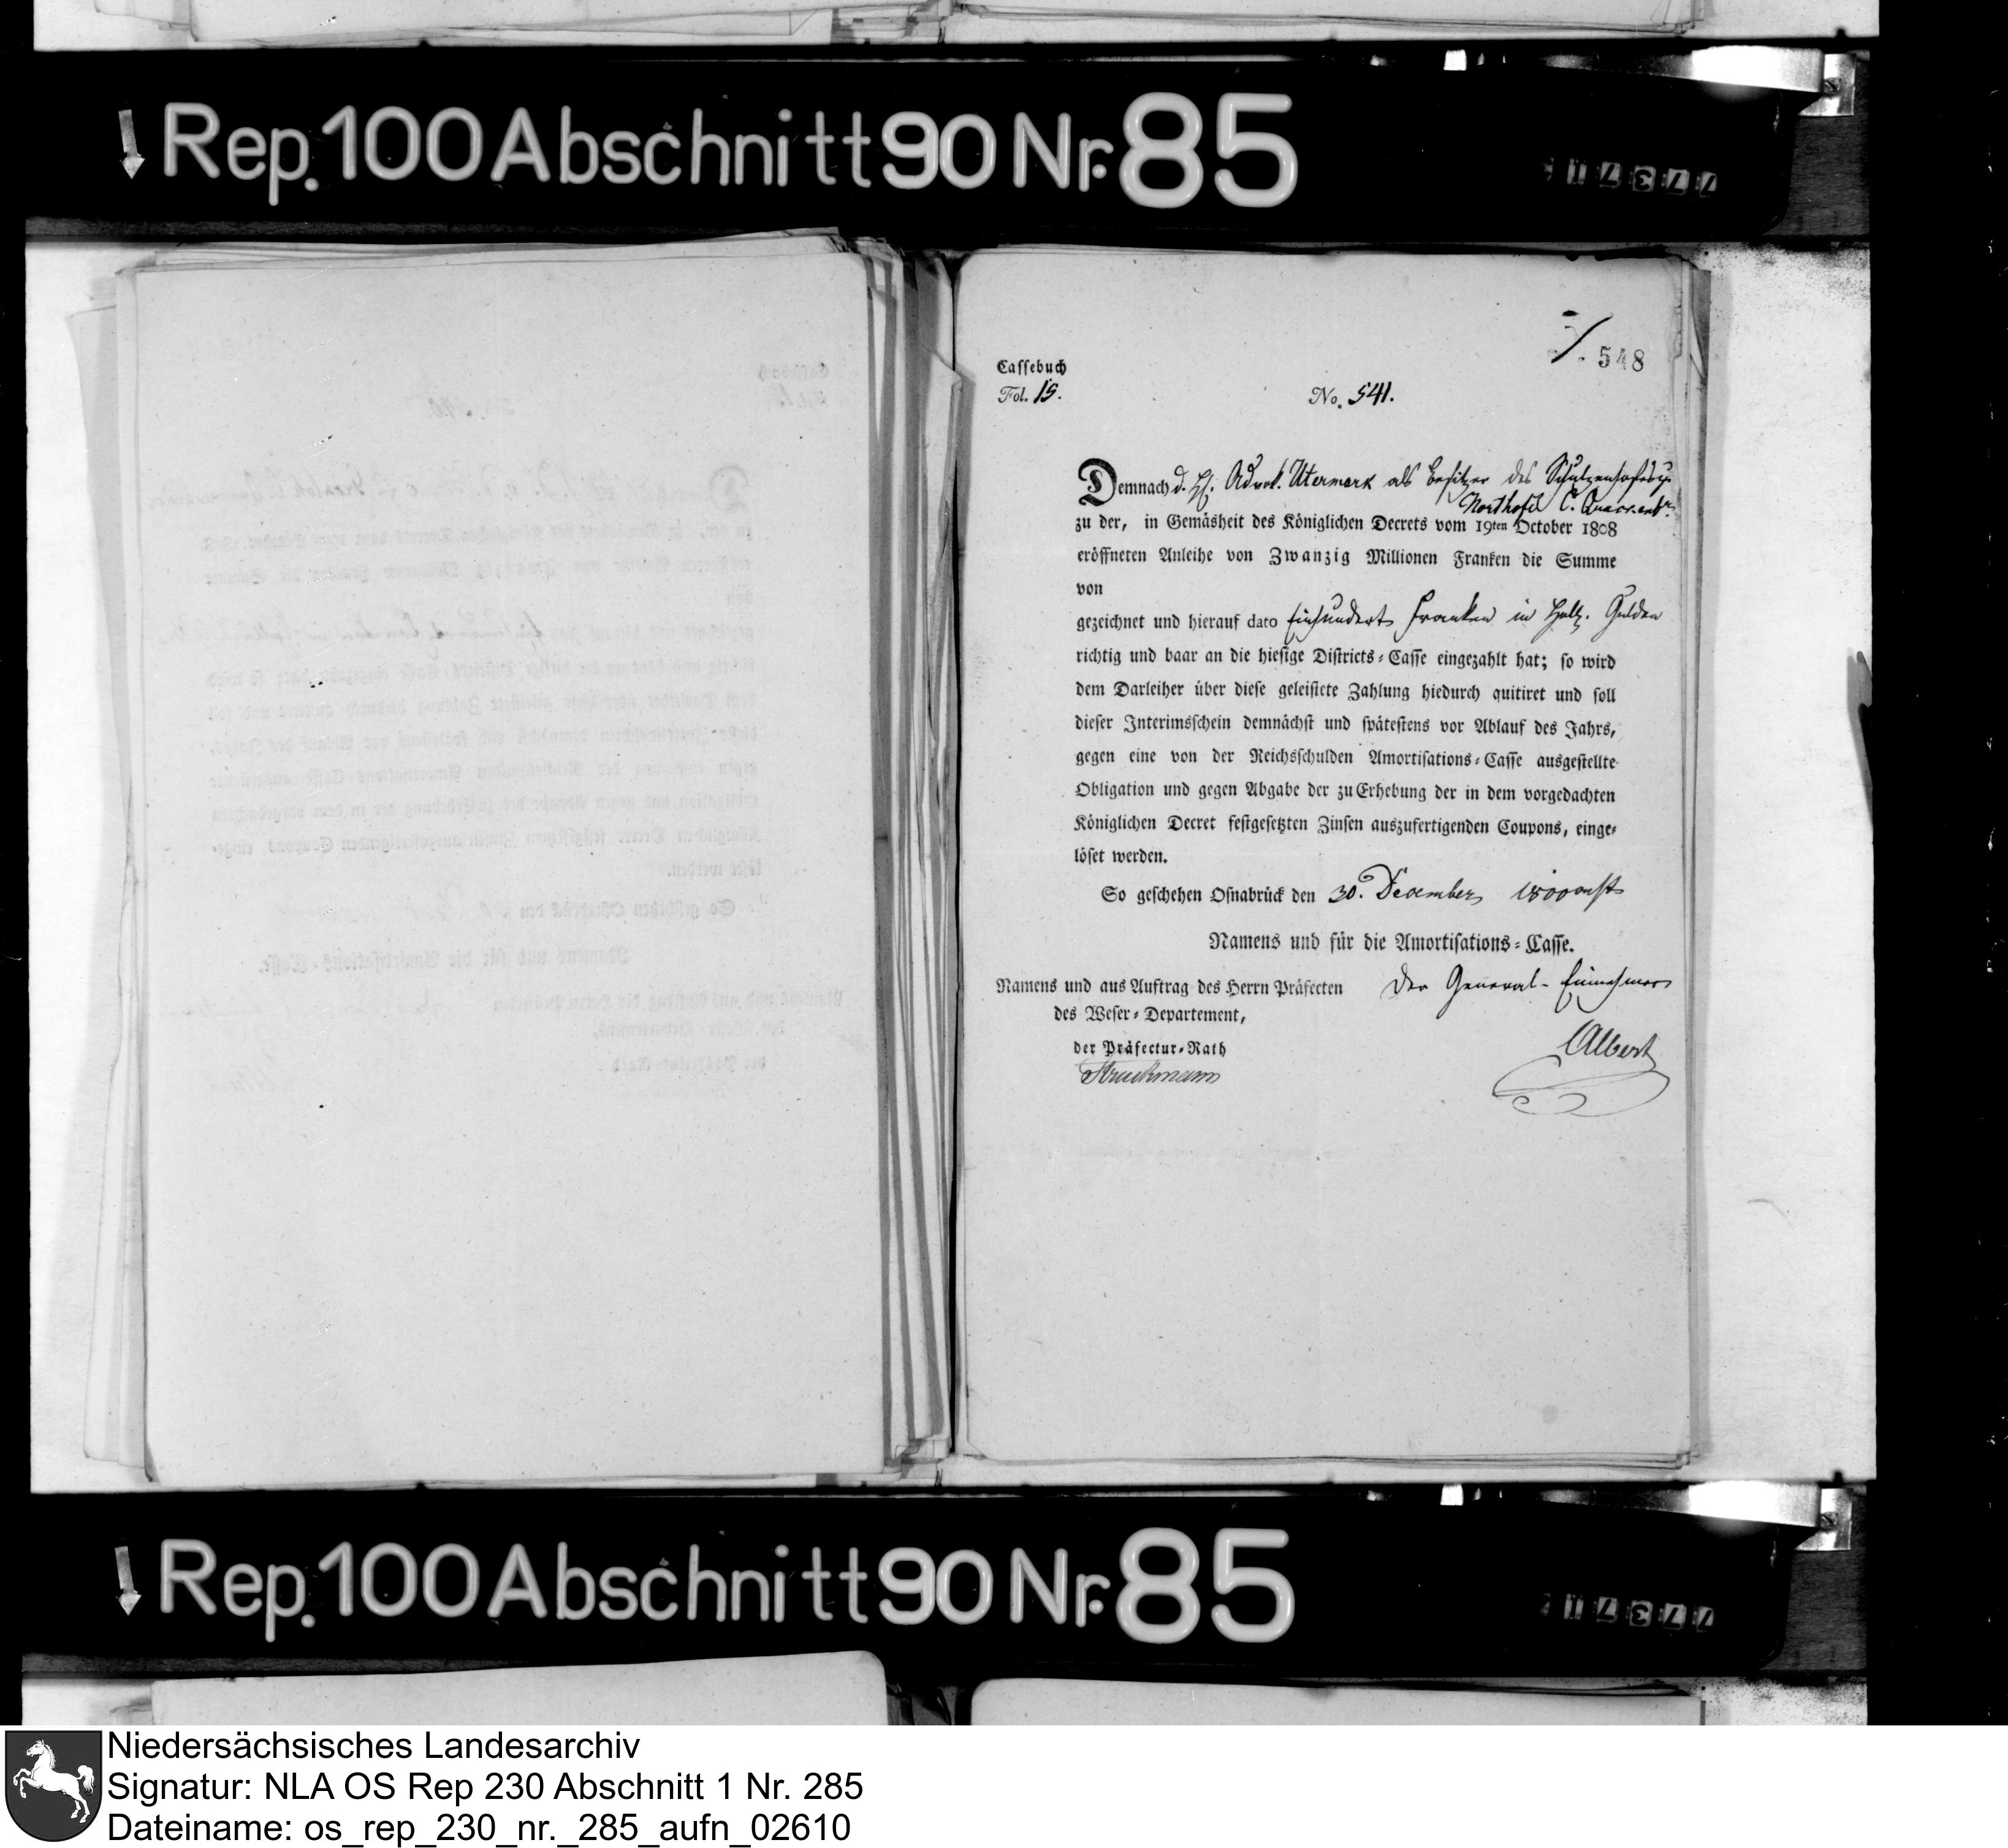 Rep. 100 Abschnitt 90 Nr. 85
548
Cassebuch
Fol. 15.
No. 541.
Demnach d. H. Advok. Utermark als Besitzer des Schulzenhofes zu
Northofe C.
zu der, in Gemäsheit des Königlichen Decrets vom 19ten October 1808
eröffneten Anleihe von Zwanzig Millionen Franken die Summe
von
gezeichnet und hierauf dato Einhundert Franken in Holl. Gulden
richtig und baar an die hiesige Districts-Casse eingezahlt hat; so wird
dem Darleiher über diese geleistete Zahlung hiedurch quitiret und soll
dieser Interimsschein demnächst und spätestens vor Ablauf des Jahrs,
gegen eine von der Reichsschulden Amortisations-Casse ausgestellte
Obligation und gegen Abgabe der zu Erhebung der in dem vorgedachten
Königlichen Decret festgesetzten Zinsen auszufertigenden Coupons, einge-
löset werden.
So geschehen Osnabrück den 30. December
Namens und für die Amortisations-Casse.
Namens und aus Auftrag des Herrn Präfecten
des Weser-Departement,
der Präfectur-Rath
Struckmann
Der General-Einnehmer
Albert
Rep. 100 Abschnitt 90 Nr. 85
Niedersächsisches Landesarchiv
Signatur: NLA OS Rep 230 Abschnitt 1 Nr. 285
Dateiname: os_rep_230_nr._285_aufn_02610